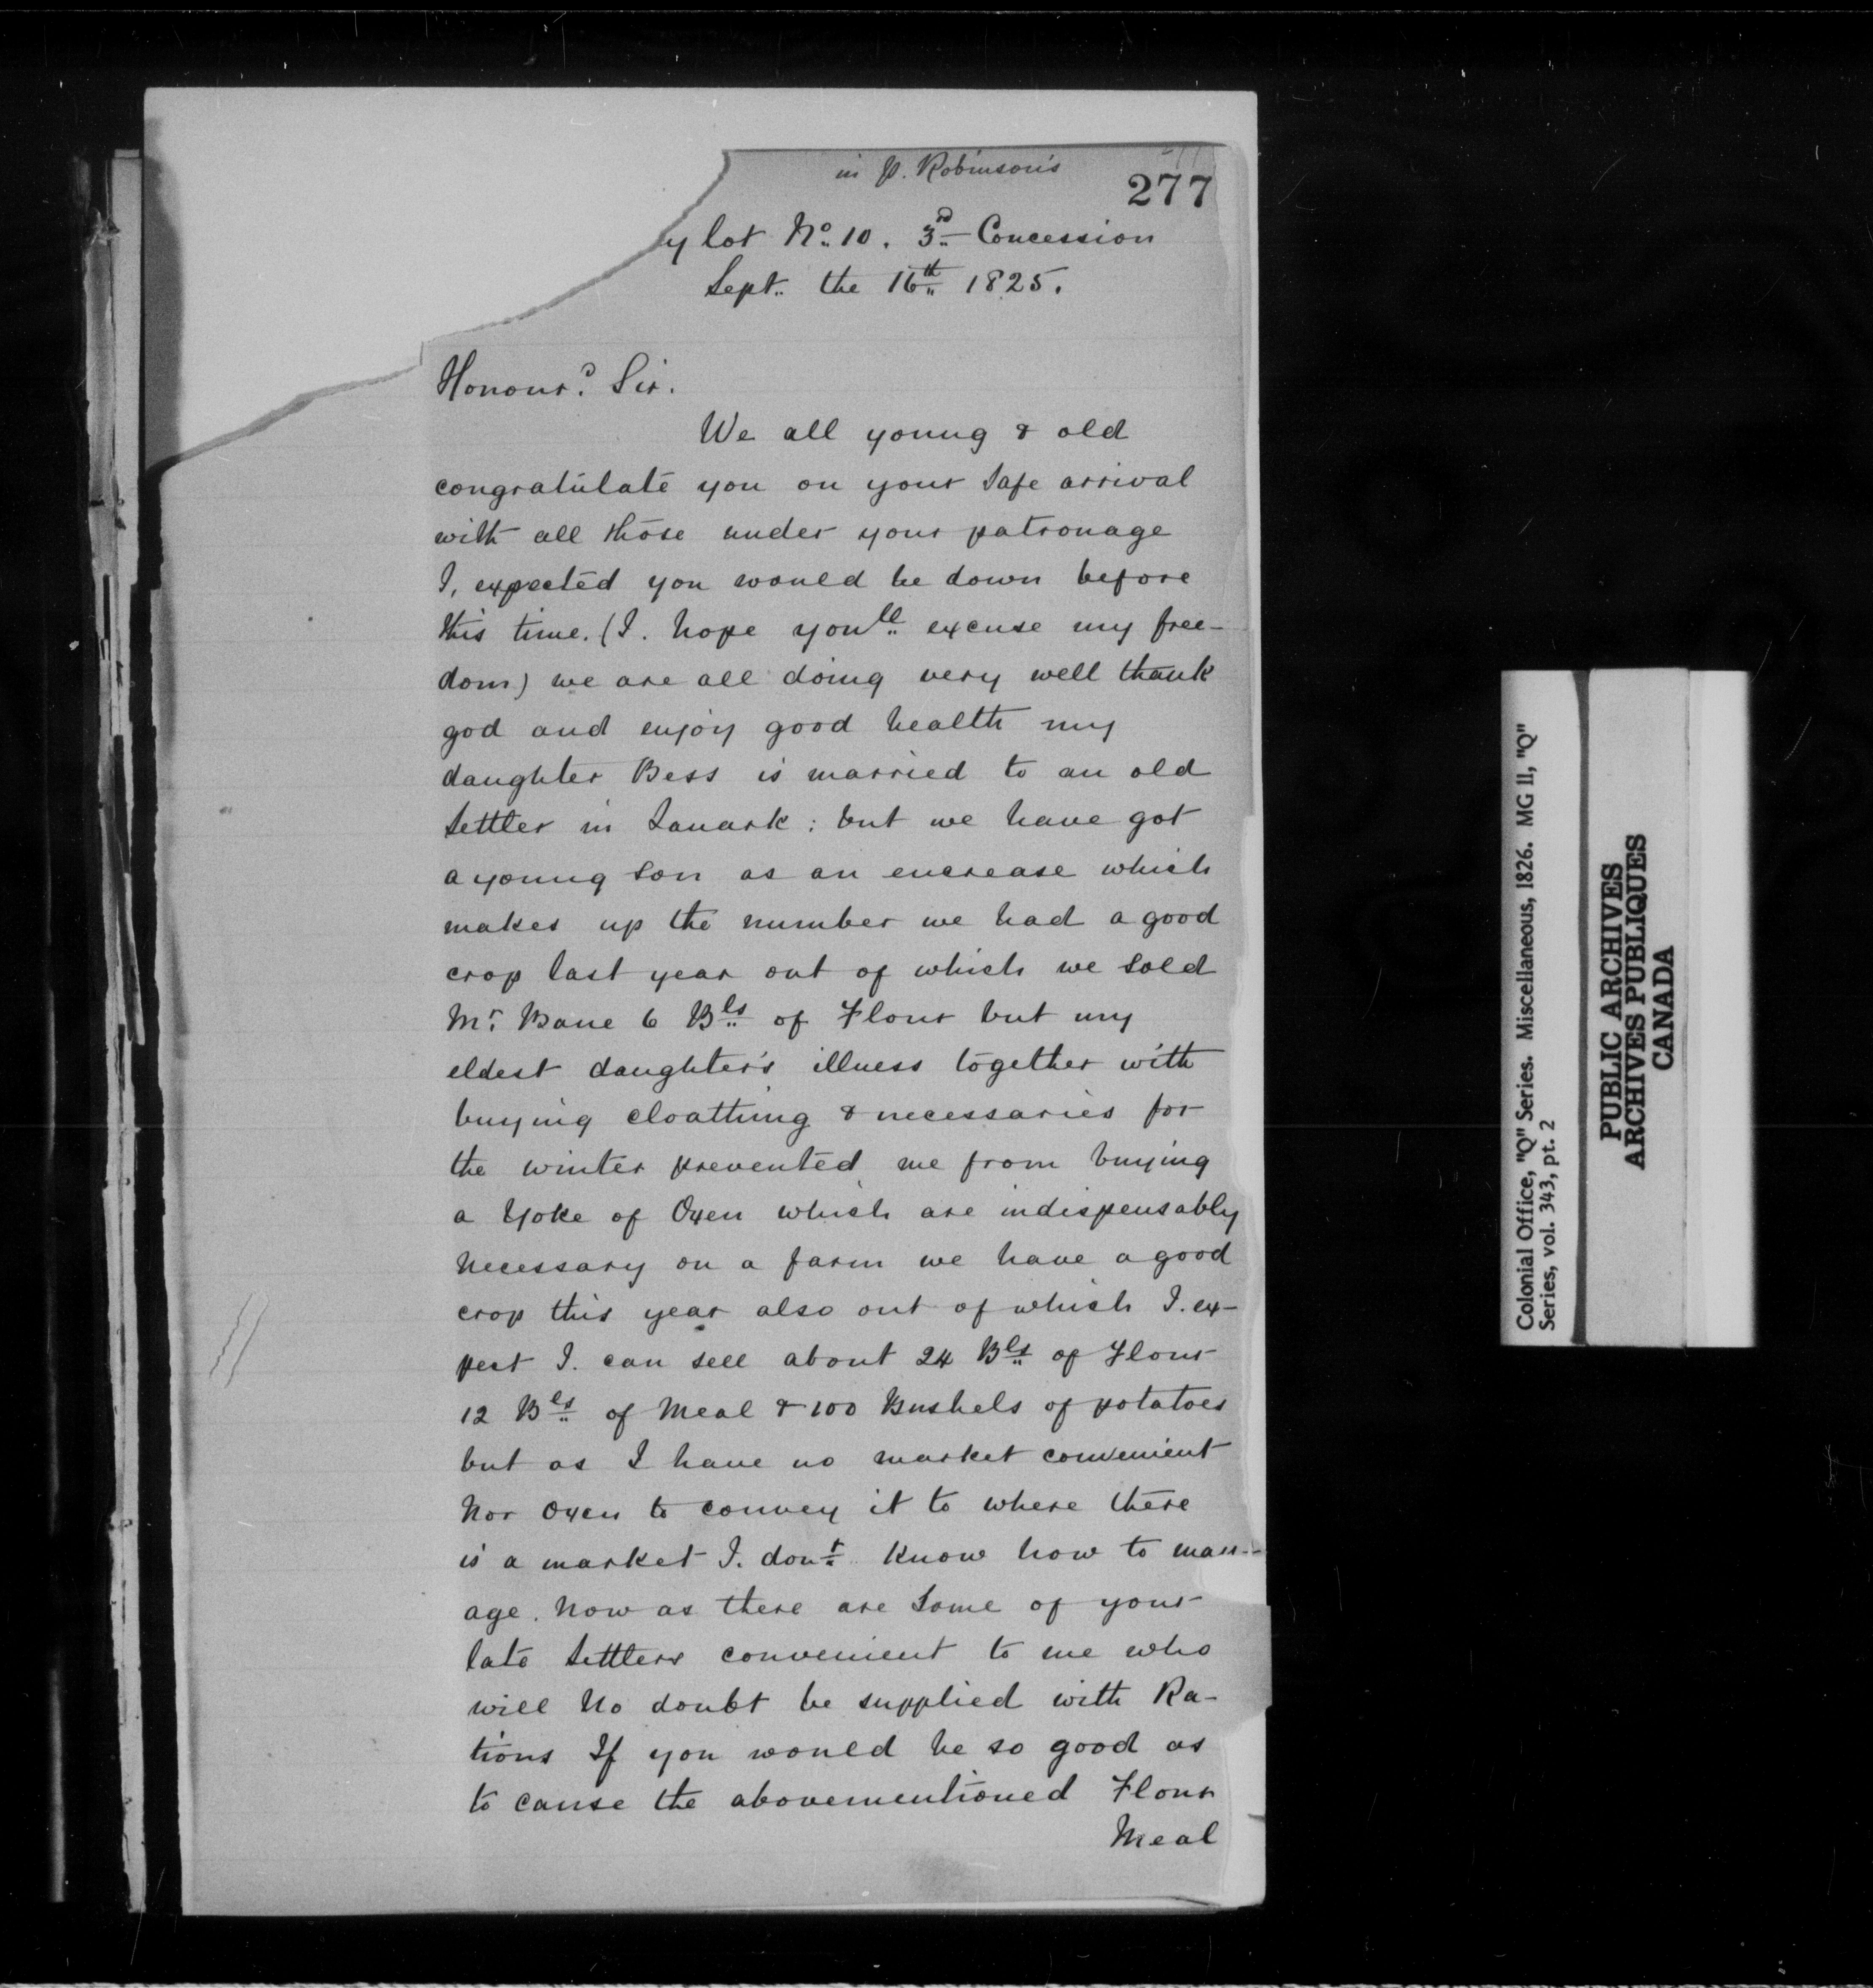 in P. Robinson's
277
y lot No. 10. 3rd Concession
Sept. the 16th 1825.
Honourd Sir.
We all young & old
congratulate you on your safe arrival
with all those under your patronage
I, expected you would be down before
this time. (I. hope you'll excuse my free-
dom) we are all doing very well thank
god and enjoy good health my
daughter Bess is married to an old
Settler in Lanark: but we have got
a young son as an encrease which
makes up the number we had a good
crop last year out of which we sold
Mr. Bane 6 Bls of Flour but my
eldest daughter's illness together with
buying cloathing & necessaries for
the winter prevented me from buying
a Yoke of Oxen which are indispensably
necessary on a farm we have a good
crop this year also out of which I. ex-
pect I. can sell about 24 Bls of Flour
12 Bls of Meal & 100 Bushels of potatoes
but as I have no market convenient
nor oxen to convey it to where there
is a market I. don't know how to man-
age. Now as there are some of your
late settlers convenient to me who
will no doubt be supplied with Ra-
tions If you would be so good as
to cause the abovementioned Flour
Meal
Colonial Office, "Q" Series. Miscellaneous, 1826. MG 11, "Q"
Series, vol. 343, pt. 2
PUBLIC ARCHIVES
ARCHIVES PUBLIQUES
CANADA